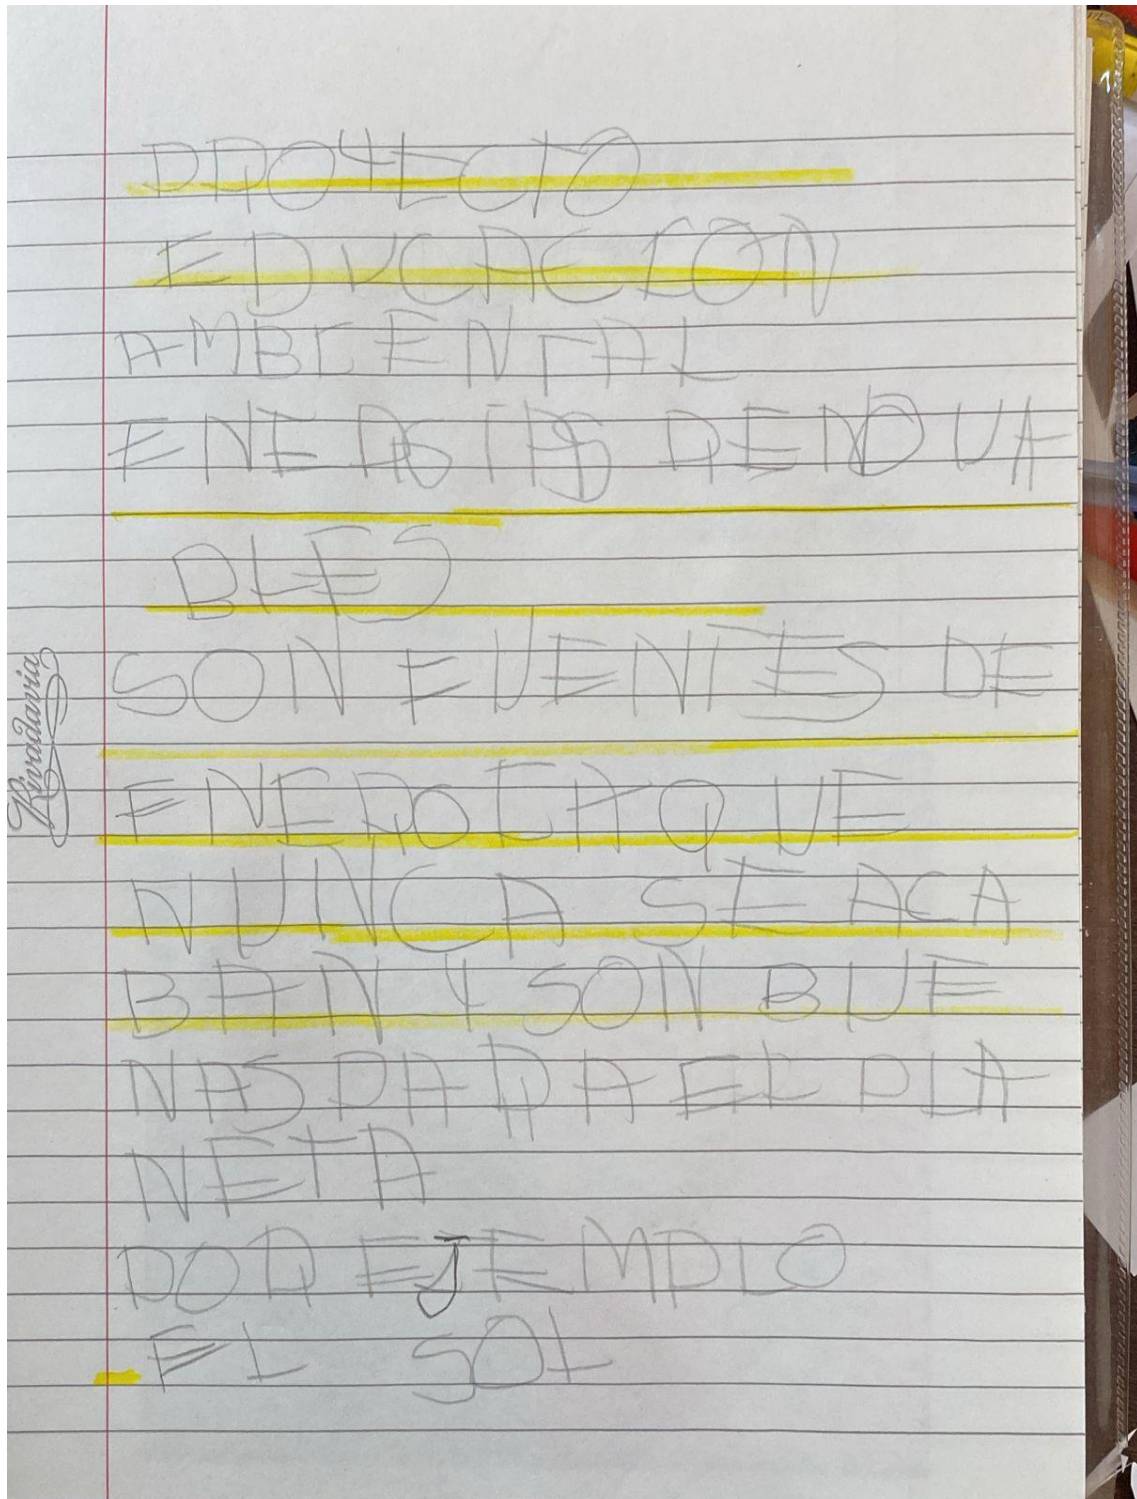 PROYECTO
EDUCACION
AMBIENTAL
ENERGIAS RENOVA
BLES
SON FUENTES DE
ENERGIA QUE
NUNCA SE ACA
BAN Y SON BUE
NAS PARA EL PLA
NETA
POR EJEMPLO
EL SOL
Rivadavia